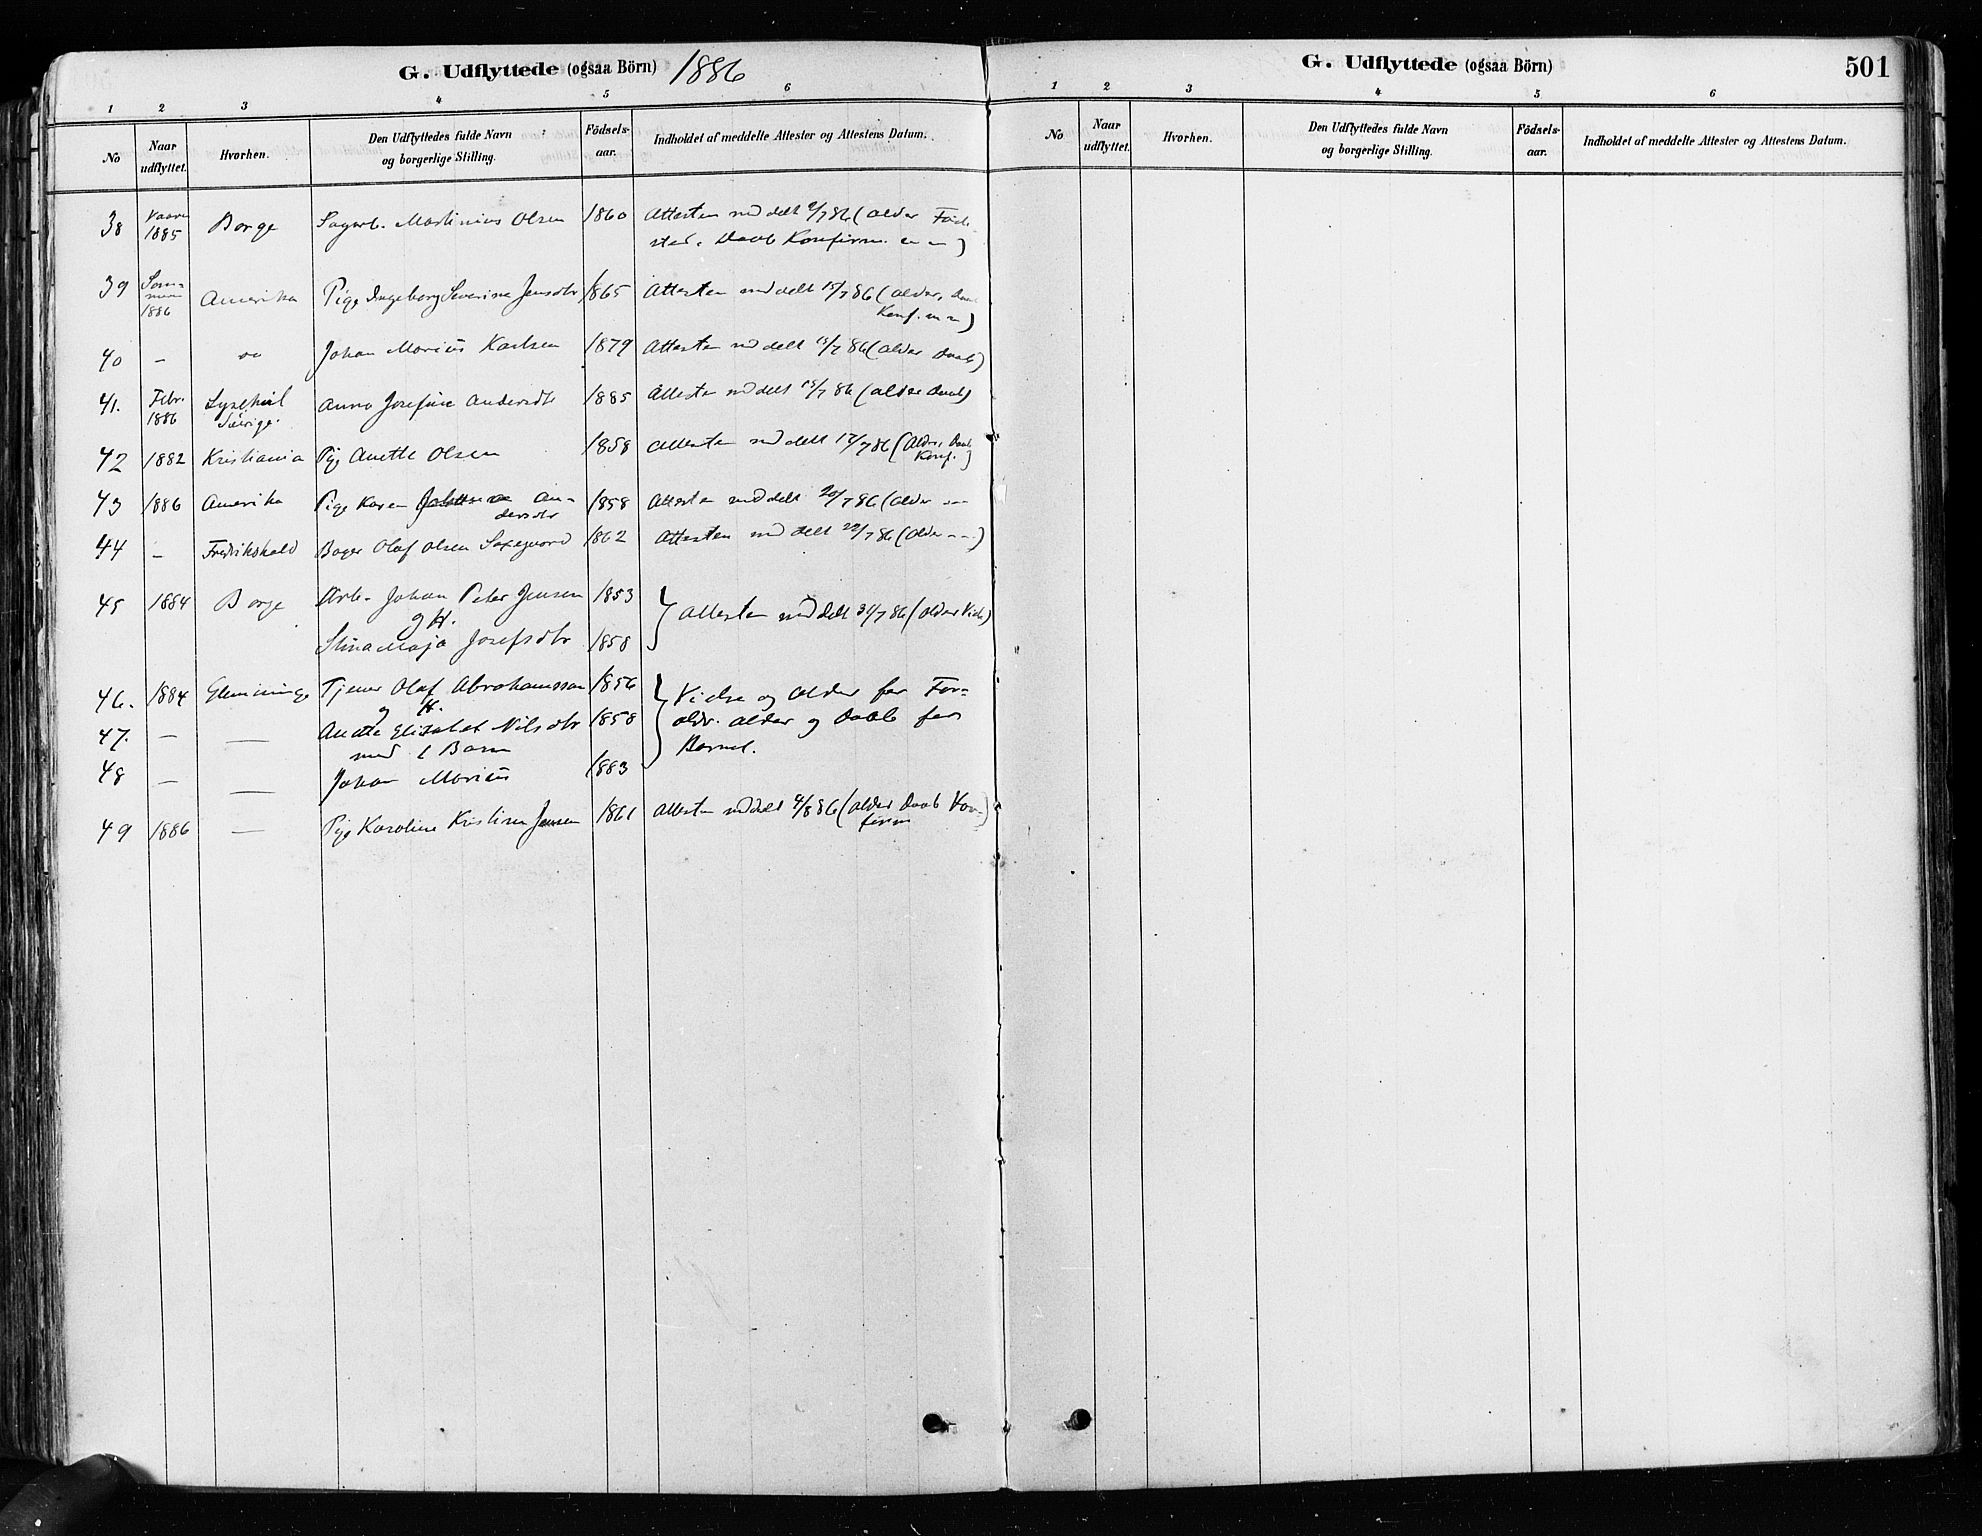 G. Udflyttede (ogsaa Börn) 1886
1 2 3 4 5 6
No Naar udflyttet. Hvorhen. Den Udflyttedes fulde Navn og borgerlige Stilling. Födsels-aar. Indholdet af meddelte Attester og Attestens Datum.
38 Vaare 1885 Borge Sagarb. Martinius Olsen 1860 Attesten meddelt 9/7 86 (Alder Föde-
sted. Daab Konfirm.
39 Som-mer 1886 Amerika Pige Ingeborg Severine Jensdtr 1865 Attesten meddelt 15/7 86 (Alder, Daab
Konf.
40 — " Johan Marius Karlsen 1879 Attesten meddelt 15/7 86 (Alder Daab)
41. Febr. 1886 Lysekil Sverige. Anna Josefine Andersdtr 1885 Attesten meddelt 15/7 86 (Alder Daab)
42 1882 Kristiania Pige Anette Olsen 1858 Attesten meddelt 17/7 86 (Alder, Daab
Konf.)
43 1886 Amerika Pige Karen An-
dersdtr 1858 Attesten meddelt 20/7 86 (Alder — —
44 — Fredrikshald Bager Olaf Olsen 1862 Attesten meddelt 22/7 86 (Alder — —)
45 1884 Borge Arb. Johan Peter Jensen 1853 Attesten meddelt 31/7 86 (Alder Vielse)
og H.
Stina Maja Josefsdtr 1858
46. 1884 Glemminge Tjener Olaf Abrahamsson 1856 Vielse og Alder for For-
og H.
47. — — Anette Elisabet Nilsdtr 1858 ældr. Alder og Daab for
med 1 Barn Barnet.
48 — — Johan Marius 1883
49 1886 — Pige Karoline Kristine Jensen 1861 Attesten meddelt 4/8 86 (Alder Daab Kon-
firm)
G. Udflyttede (ogsaa Börn) 501
1 2 3 4 5 6
No Naar udflyttet. Hvorhen. Den Udflyttedes fulde Navn og borgerlige Stilling. Födsels-aar. Indholdet af meddelte Attester og Attestens Datum.